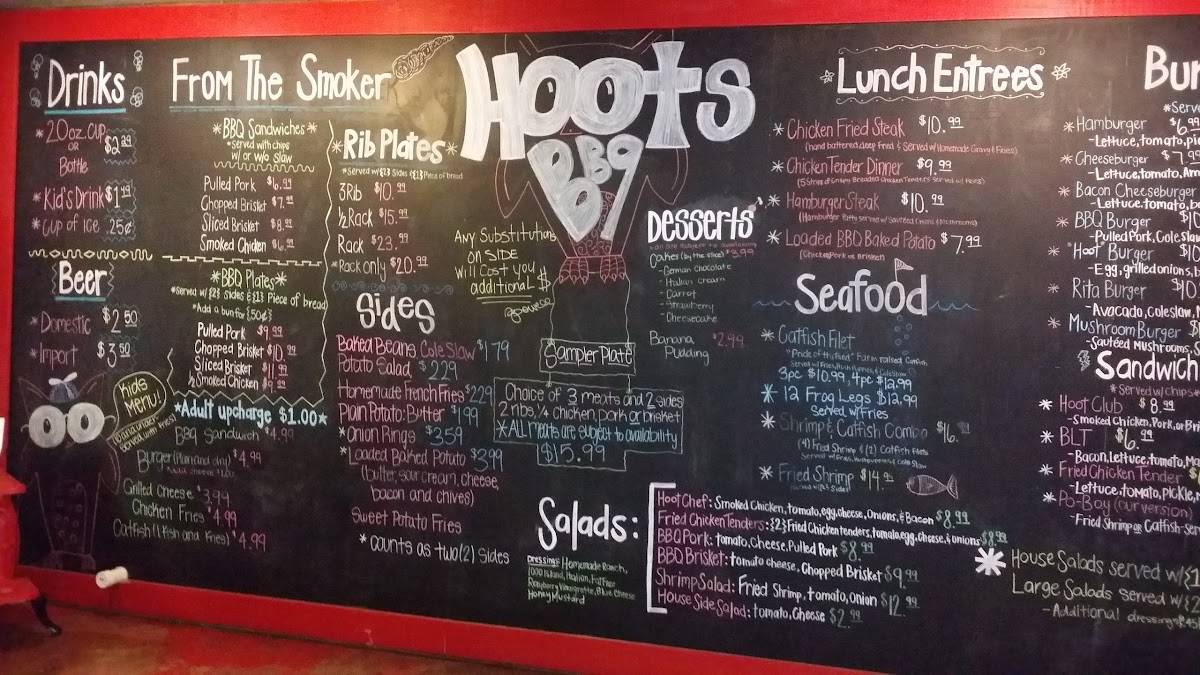 Drinks
*20oz. cup
or
Bottle
*Kid's Drink $1
*cup of ice .25¢
Beer
*Domestic $2.50
*Import $3.50
Kids
Menu!
From The Smoker
*BBQ Sandwiches*
*Served with chips
w/ or w/o slaw
Pulled Pork $6.99
Chopped Brisket
Sliced Brisket
Smoked Chicken
*BBQ Plates*
*Served w/{2} Sides {1} Piece of bread
*Add a bun for {50¢}
Pulled Pork $9.99
Chopped Brisket $10.99
Sliced Brisket $11.99
½ Smoked Chicken $9.99
*Adult upcharge $1.00*
BBQ Sandwich $4.99
Burger (Plain and dry) $4.99
Grilled Cheese $3.99
Chicken Fries $4.99
Catfish (1 fish and fries) $4.99
*Rib Plates*
*Served w/{2} Sides {1} Piece of bread
3 Rib $10.99
½ Rack $15.99
Rack $23.99
*Rack only $20.99
Sides
Baked Beans Cole Slaw $1.79
Potato Salad $2.29
Homemade French Fries $2.29
Plain Potato: Butter $1.99
*Onion Rings $3.59
*Loaded Baked Potato $3.99
(butter, sour cream, cheese,
bacon and chives)
Sweet Potato Fries
* counts as two (2) sides
Hoots
BBQ
Any Substitution
on SIDE
will Cost you
additional $
Desserts
Cakes (by the slice) $3.99
- German Chocolate
- Italian Cream
- Carrot
- Strawberry
- Cheesecake
Banana $2.99
Pudding
Sampler Plate
Choice of 3 meats and 2 sides
2 ribs, ¼ chicken, pork or brisket
*ALL meats are subject to availability
$15.99
Salads:
Dressings: Homemade Ranch,
1000 Island, Italian, Fat Free
Raspberry Vinaigrette, Blue Cheese
Honey Mustard
Hoot Chef: Smoked Chicken, tomato, egg, cheese, Onions, & Bacon $8.99
Fried Chicken Tenders: {2} Fried Chicken tenders, tomato, egg, cheese, & onions $8.99
BBQ Pork: tomato, Cheese, Pulled Pork $8.99
BBQ Brisket: tomato cheese, Chopped Brisket $9.99
Shrimp Salad: Fried Shrimp, tomato, Onion $12.99
House Side Salad: tomato, Cheese $2.99
Lunch Entrees
*Chicken Fried Steak $10.99
(hand battered, deep fried & Served w/ Homemade Gravy & Fries)
*Chicken Tender Dinner $9.99
*Hamburger Steak $10.99
(Hamburger Patty served w/ Sautéed Onions & Mushrooms)
*Loaded BBQ Baked Potato $7.99
(Chicken, Pork or Brisket)
Seafood
*Catfish Filet
"Pride of the Pond" Farm raised Catfish
3pc $10.99, 4pc $12.99
*12 Frog Legs $12.99
Served w/ Fries
*Shrimp & Catfish Combo $16.
(4) Fried Shrimp & (2) Catfish Filets
*Fried Shrimp $14.
Bur
*Serve
*Hamburger $6.99
-Lettuce, tomato, pic
*Cheeseburger $7
-Lettuce, tomato, Am
*Bacon Cheeseburger
-Lettuce, tomato, ba
*BBQ Burger
-Pulled Pork, Cole Slaw
*"Hoot" Burger $10
-Egg, grilled onions, b
*Rita Burger $10
-Avocado, Coleslaw,
*Mushroom Burger
-Sautéed Mushrooms, S
Sandwich
*Served w/ Chips
*Hoot Club $8.99
-Smoked Chicken, Pork, or Bri
*BLT $6.99
-Bacon, Lettuce, tomato, Ma
*Fried Chicken Tender
-Lettuce, tomato, pickle,
*Po-Boy (our version)
-Fried Shrimp or Catfish-Serv
*House Salads served w/{1
Large Salads served w/{2
-Additional dressings